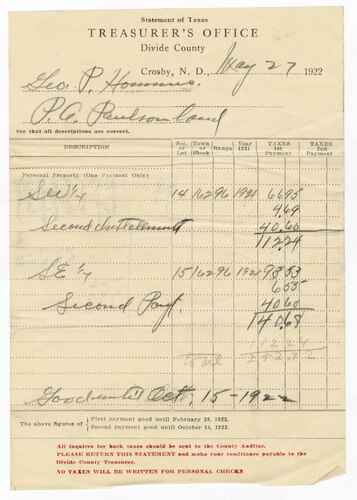 Statement of Taxes
TREASURER'S OFFICE
Divide County
Crosby, N. D., May 27 1922
Geo. P. Hommes.
P. O. Paulson land
See that all descriptions are correct.
DESCRIPTION Sec. or Lot Town or Block Range Year 1921 TAXES 1st Payment TAXES 2nd Payment
Personal Property (One Payment Only)
SW 1/4 14 162 96 1921 66.95
4.69
Second Installment 40.60
112.24
SE 1/4 15 162 96 1921 93.53
6.55
Second Payt. 40.60
140.68
112.24
252.92
Good until Oct. 15 - 1922
The above figures of { First payment good until February 28, 1922.
Second payment good until October 14, 1922.
All inquires for back taxes should be sent to the County Auditor.
PLEASE RETURN THIS STATEMENT and make your remittance payable to the
Divide County Treasurer.
NO TAXES WILL BE WRITTEN FOR PERSONAL CHECKS